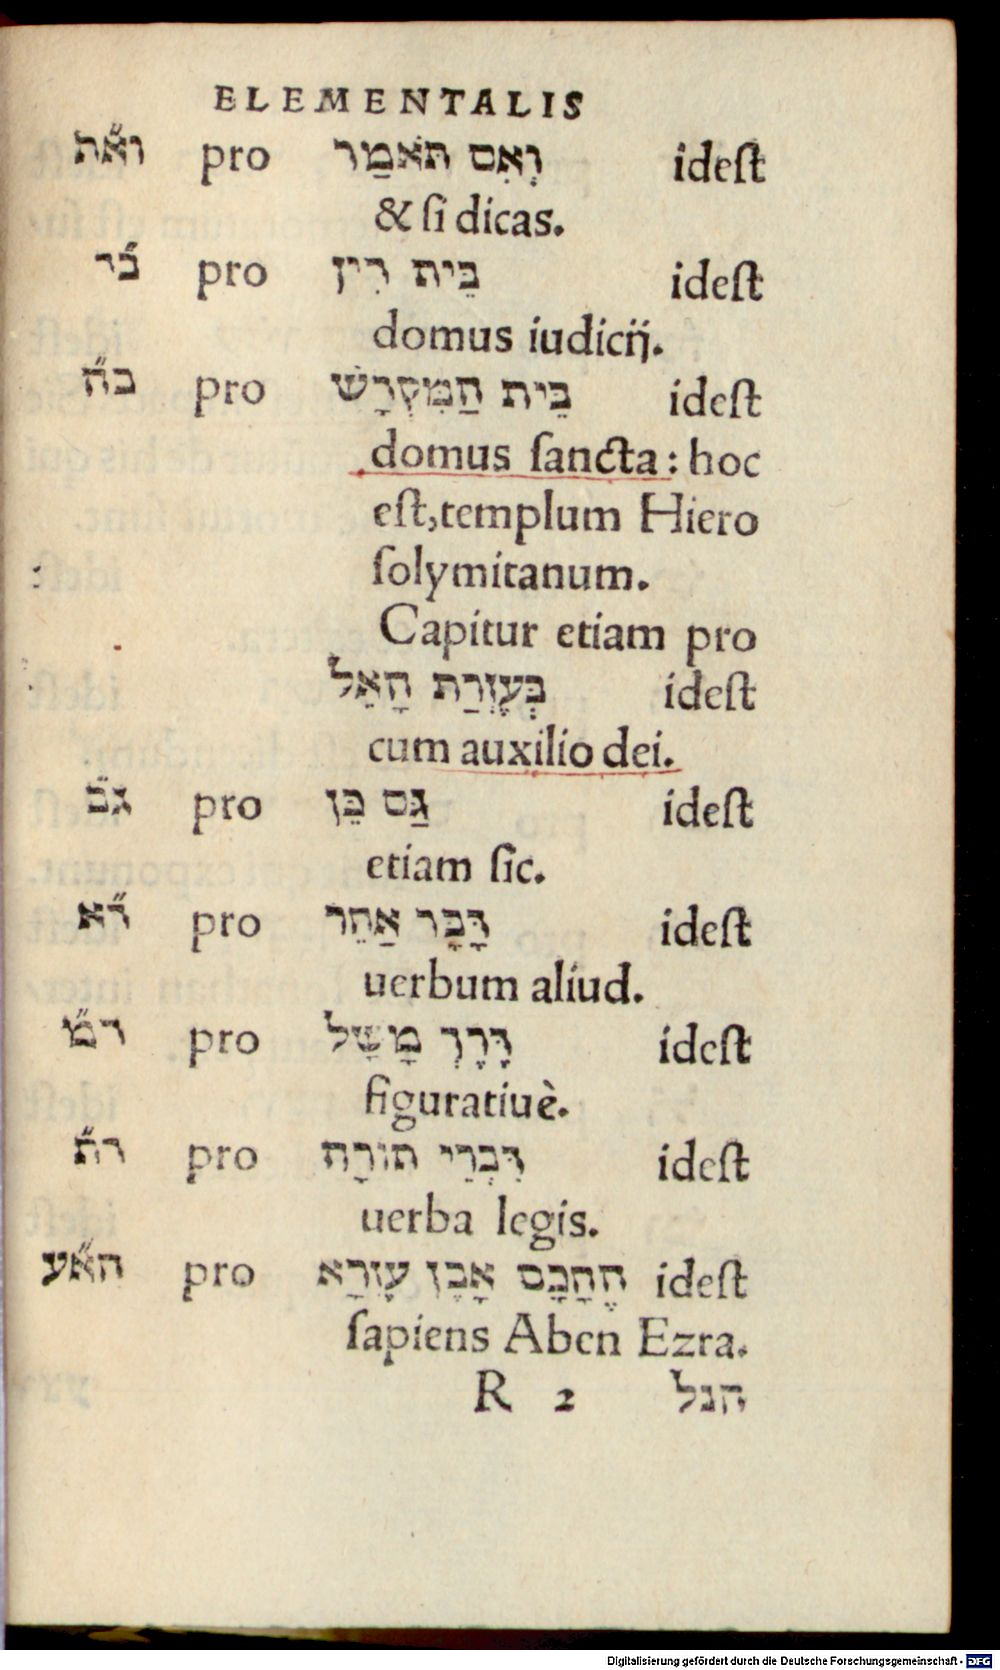 ELEMENTALIS
וא״ת pro וְאִם תֹּאמַר idest
& ſi dicas.
ב״ד pro בֵּית דִּין idest
domus iudicij.
בה״ pro בֵּית הַמִּקְדָשׁ idest
domus ſancta: hoc
eſt, templum Hiero
ſolymitanum.
Capitur etiam pro
בְּעֶזְרַת הָאֵל idest
cum auxilio dei.
ג״כ pro גַּם כֵּן idest
etiam ſic.
ד״א pro דָּבָר אַחֵר idest
uerbum aliud.
ד״מ pro דֶּרֶךְ מָשָׁל idest
figuratiuè.
ד״ת pro דִּבְרֵי תוֹרָה idest
uerba legis.
הא״ע pro הֶחָכָם אָבֶן עֶזְרָא idest
ſapiens Aben Ezra.
R 2 הנל
Digitalisierung gefördert durch die Deutsche Forschungsgemeinschaft - DFG